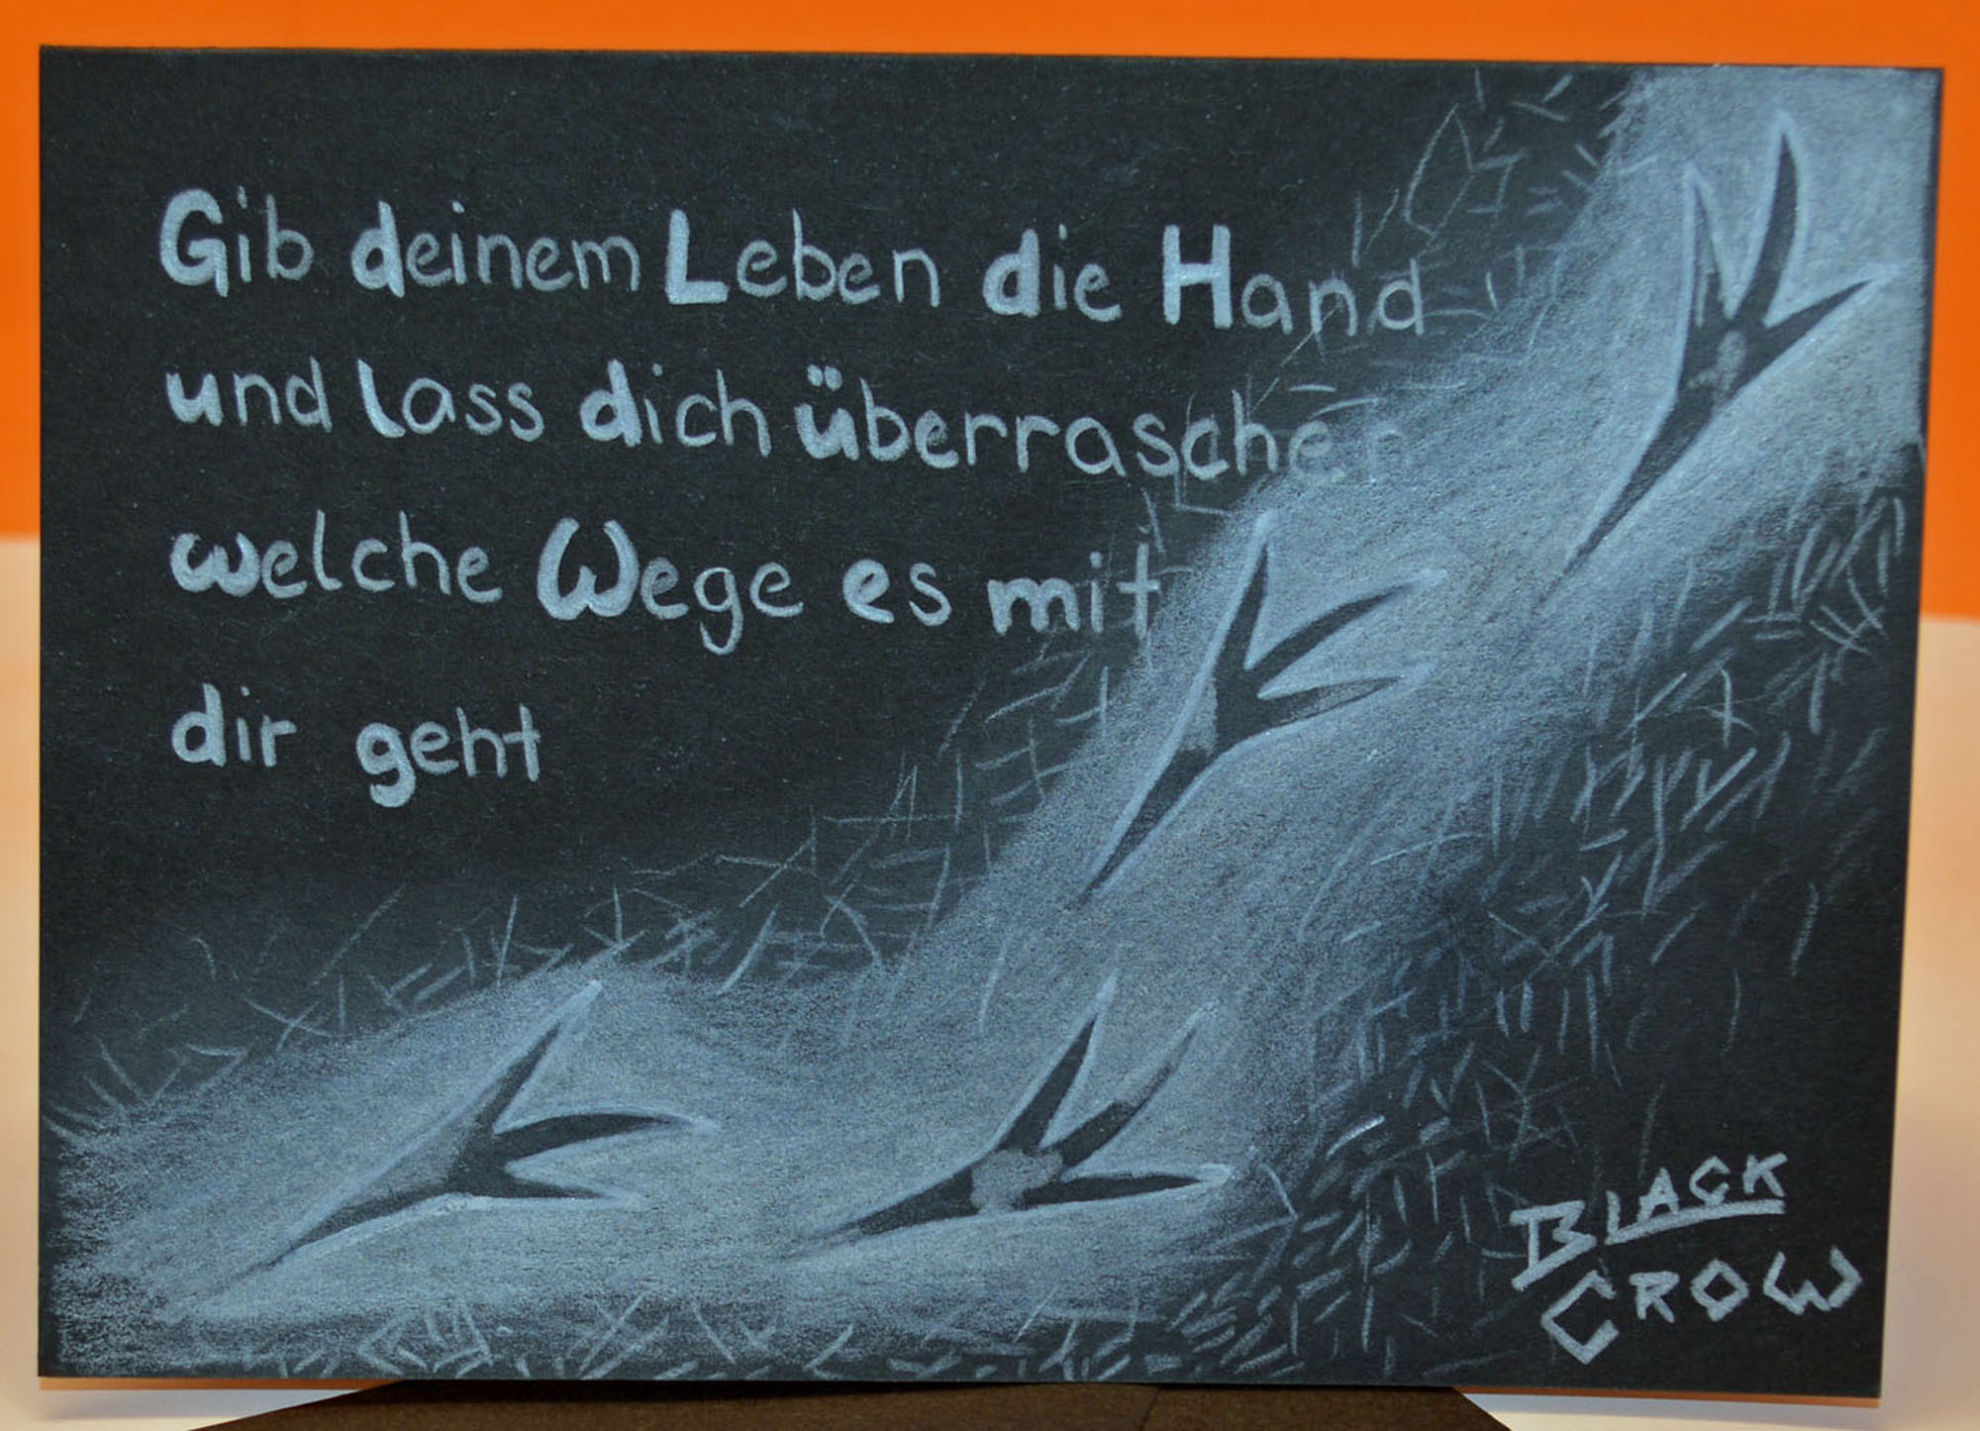 Gib deinem Leben die Hand
und lass dich überraschen
welche Wege es mit
dir geht
BLACK
CROW